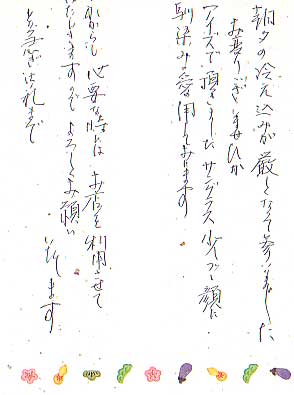 朝夕の冷え込みが厳しくなって参りました
お変りございませんか
アイズで頂きましたサングラス少しづつ顔に
馴染み愛用しております
これからも必要な時にはお店を利用させて
いただきますのでよろしくお願い
いたします
とり急ぎお礼まで